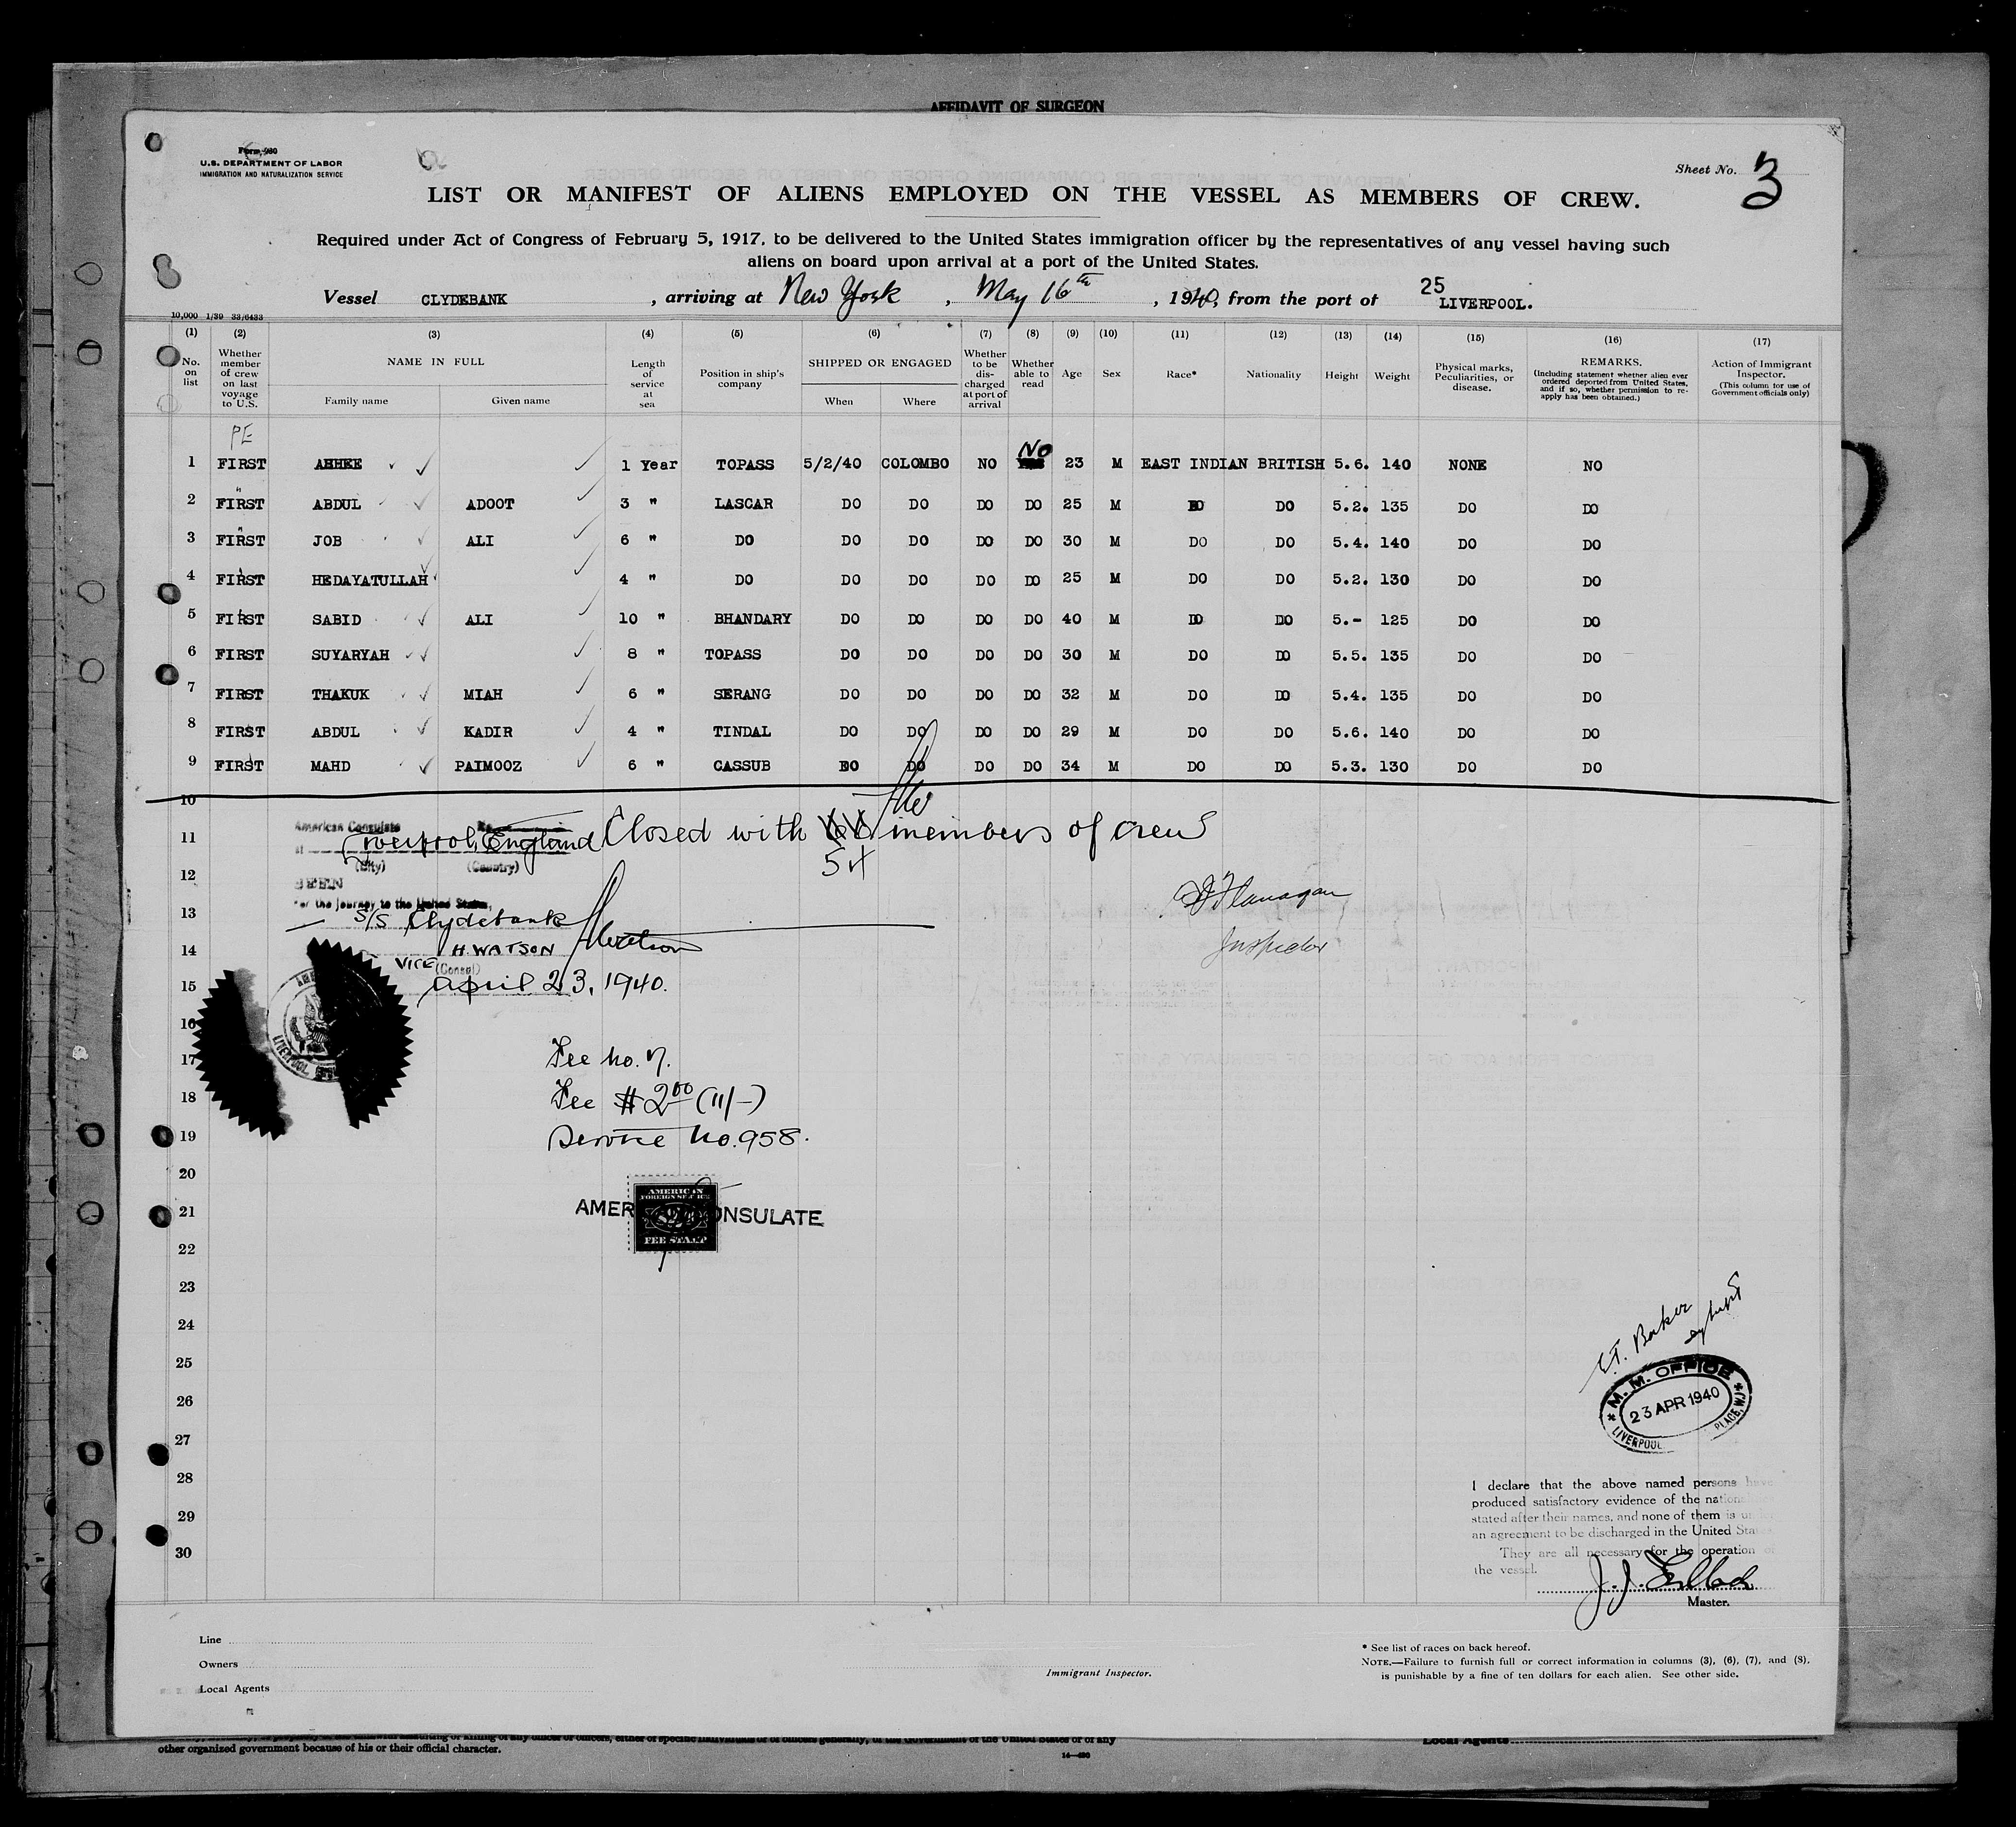 AFFIDAVIT OF SURGEON
U.S. DEPARTMENT OF LABOR
IMMIGRATION AND NATURALIZATION SERVICE
Sheet No. 3
LIST OR MANIFEST OF ALIENS EMPLOYED ON THE VESSEL AS MEMBERS OF CREW.
Required under Act of Congress of February 5, 1917, to be delivered to the United States immigration officer by the representatives of any vessel having such
aliens on board upon arrival at a port of the United States.
25
Vessel CLYDEBANK, arriving at New York, May 16th, 1940, from the port of LIVERPOOL.
10,000 1/39 33/6433
(1) (2) (3) (4) (5) (6) (7) (8) (9) (10) (11) (12) (13) (14) (15) (16) (17)
No. on list
Whether member of crew on last voyage to U.S.
NAME IN FULL
Family name Given name
Length of service at sea
Position in ship's company
SHIPPED OR ENGAGED
When Where
Whether to be discharged at port of arrival
Whether able to read
Age
Sex
Race*
Nationality
Height
Weight
Physical marks, Peculiarities, or disease.
REMARKS.
(Including statement whether alien ever ordered deported from United States, and if so, whether permission to re-apply has been obtained.)
Action of Immigrant Inspector.
(This column for use of Government officials only)
PE
NO
1 FIRST ABHEE 1 Year TOPASS 5/2/40 COLOMBO NO 23 M EAST INDIAN BRITISH 5.6. 140 NONE NO
2 FIRST ABDUL ADOOT 3 " LASCAR DO DO DO DO 25 M DO DO 5.2. 135 DO DO
3 FIRST JOB ALI 6 " DO DO DO DO DO 30 M DO DO 5.4. 140 DO DO
4 FIRST HEDAYATULLAH 4 " DO DO DO DO DO 25 M DO DO 5.2. 130 DO DO
5 FIRST SABID ALI 10 " BHANDARY DO DO DO DO 40 M DO DO 5.- 125 DO DO
6 FIRST SUYARYAH 8 " TOPASS DO DO DO DO 30 M DO DO 5.5. 135 DO DO
7 FIRST THAKUK MIAH 6 " SERANG DO DO DO DO 32 M DO DO 5.4. 135 DO DO
8 FIRST ABDUL KADIR 4 " TINDAL DO DO DO DO 29 M DO DO 5.6. 140 DO DO
9 FIRST MAHD PAIMOOZ 6 " CASSUB DO DO DO DO 34 M DO DO 5.3. 130 DO DO
10
American Consulate No.
11 at Liverpool, England Closed with members of crew
(City) (Country) 54
12
SEEN
For the journey to the United States,
13 S/S Clydebank
J Flanagan
14 H. WATSON HWatson Inspector
VICE (Consul)
15 April 23, 1940.
LIVERPOOL
16
17 Fee No. 7.
18 Fee $2.00 (11/-)
19 Service No. 958.
20
21 AMERICAN CONSULATE
AMERICAN
FOREIGN SERVICE
FEE STAMP
22
23
24
25
26
27
28
29
30
E.T. Baker
M. M. OFFICE
23 APR 1940
LIVERPOOL PLACE, W.
I declare that the above named persons have
produced satisfactory evidence of the
stated after their names, and none of them is under
an agreement to be discharged in the United States
They are all necessary for the operation of
the vessel.
Master.
Line
Owners
Local Agents
Immigrant Inspector.
* See list of races on back hereof.
NOTE.—Failure to furnish full or correct information in columns (3), (6), (7), and (8),
is punishable by a fine of ten dollars for each alien. See other side.
other organized government because of his or their official character.
Local Agents